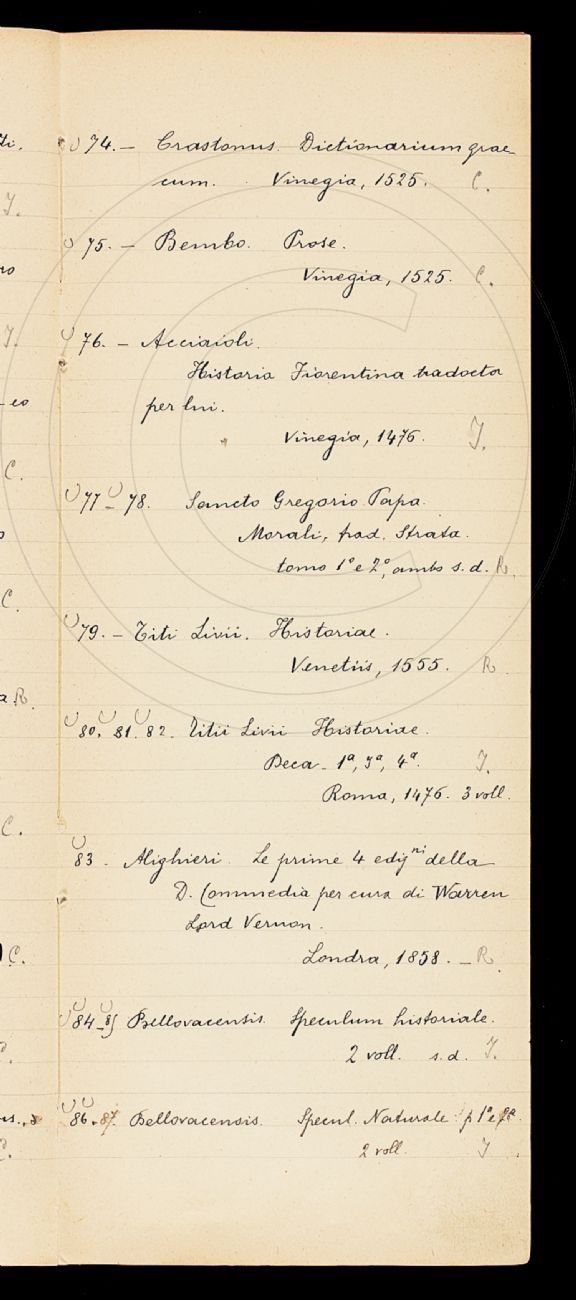 74. — Crastonus. Dictionarium grae
cum. Vinegia, 1525. C.
75. — Bembo. Prose.
Vinegia, 1525. C.
76. — Acciaioli.
Historia Fiorentina tradocta
per lui.
Vinegia, 1476. I.
77 - 78. Sancto Gregorio Papa.
Morali, trad. Strata.
tomo 1º e 2º, ambo s. d. R.
79. — Titi Livii. Historiae.
Venetiis, 1555. R
80. 81. 82. Titii Livii Historiae.
Deca - 1ª, 3ª, 4ª. I.
Roma, 1476. 3 voll.
83. Alighieri. Le prime 4 edij ni della
D. Commedia per cura di Warren
Lord Vernon.
Londra, 1858. — R.
84 - 85 Bellovacensis. Speculum historiale.
2 voll. s. d. I.
86 - 87. Bellovacensis. Specul. Naturale: p 1ª e 2ª.
2 voll. I